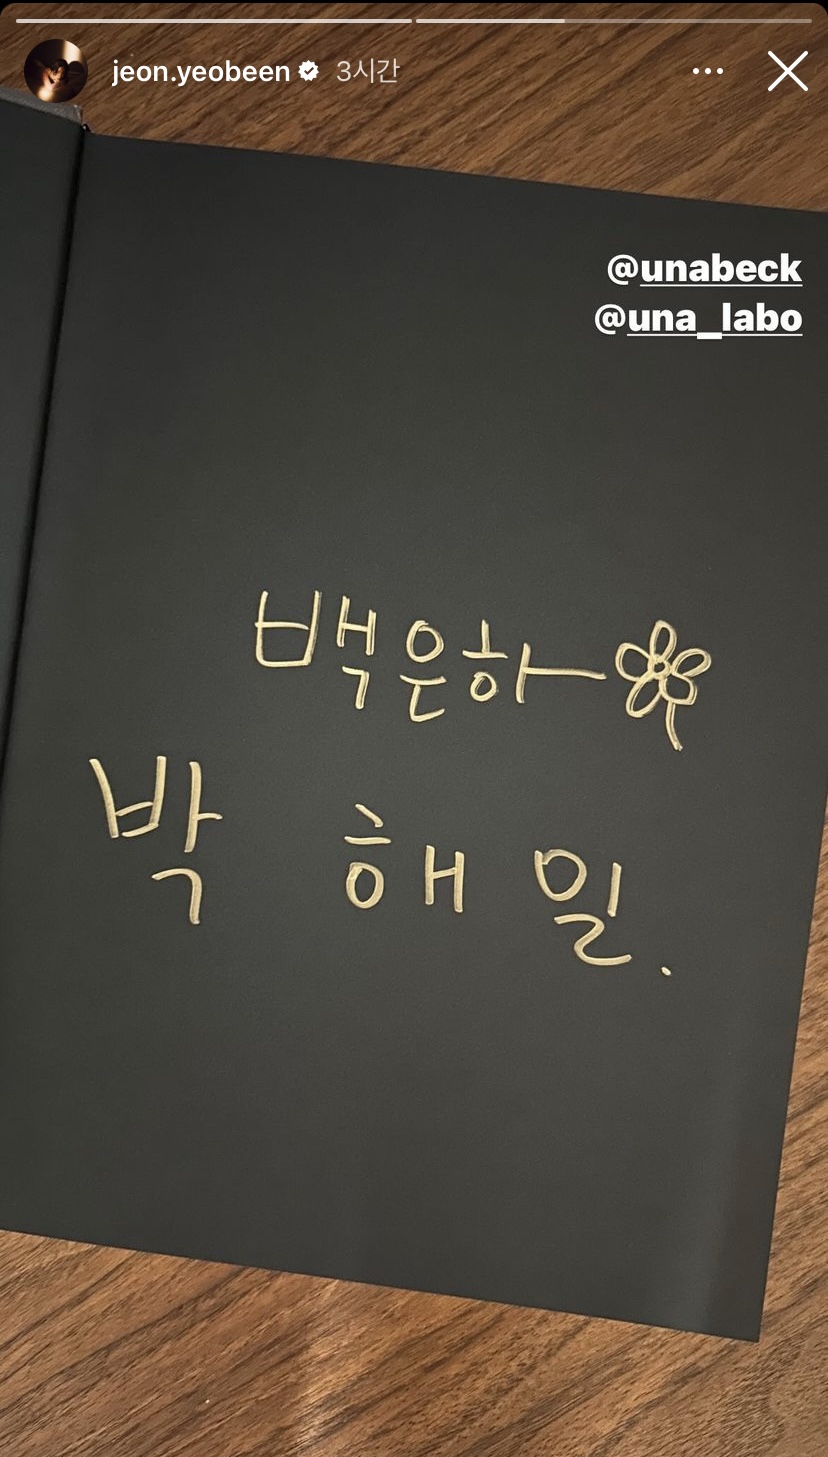 jeon.yeobeen 3시간
@unabeck
@una_labo
백은하
박 해 일.